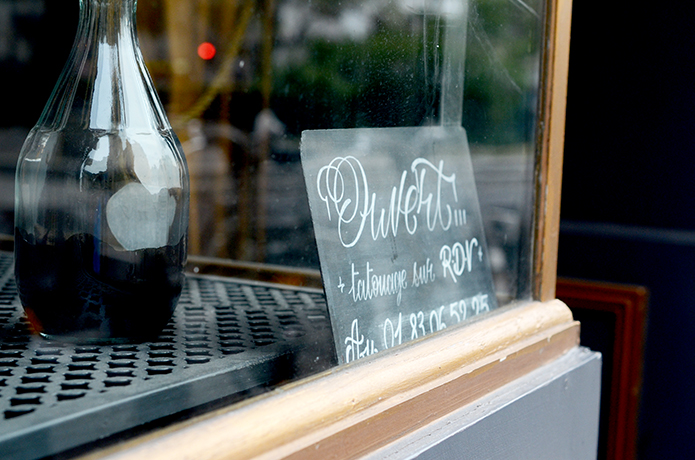 Ouvert!...
+ tatouage sur RDV +
Au 01 83 06 52 25